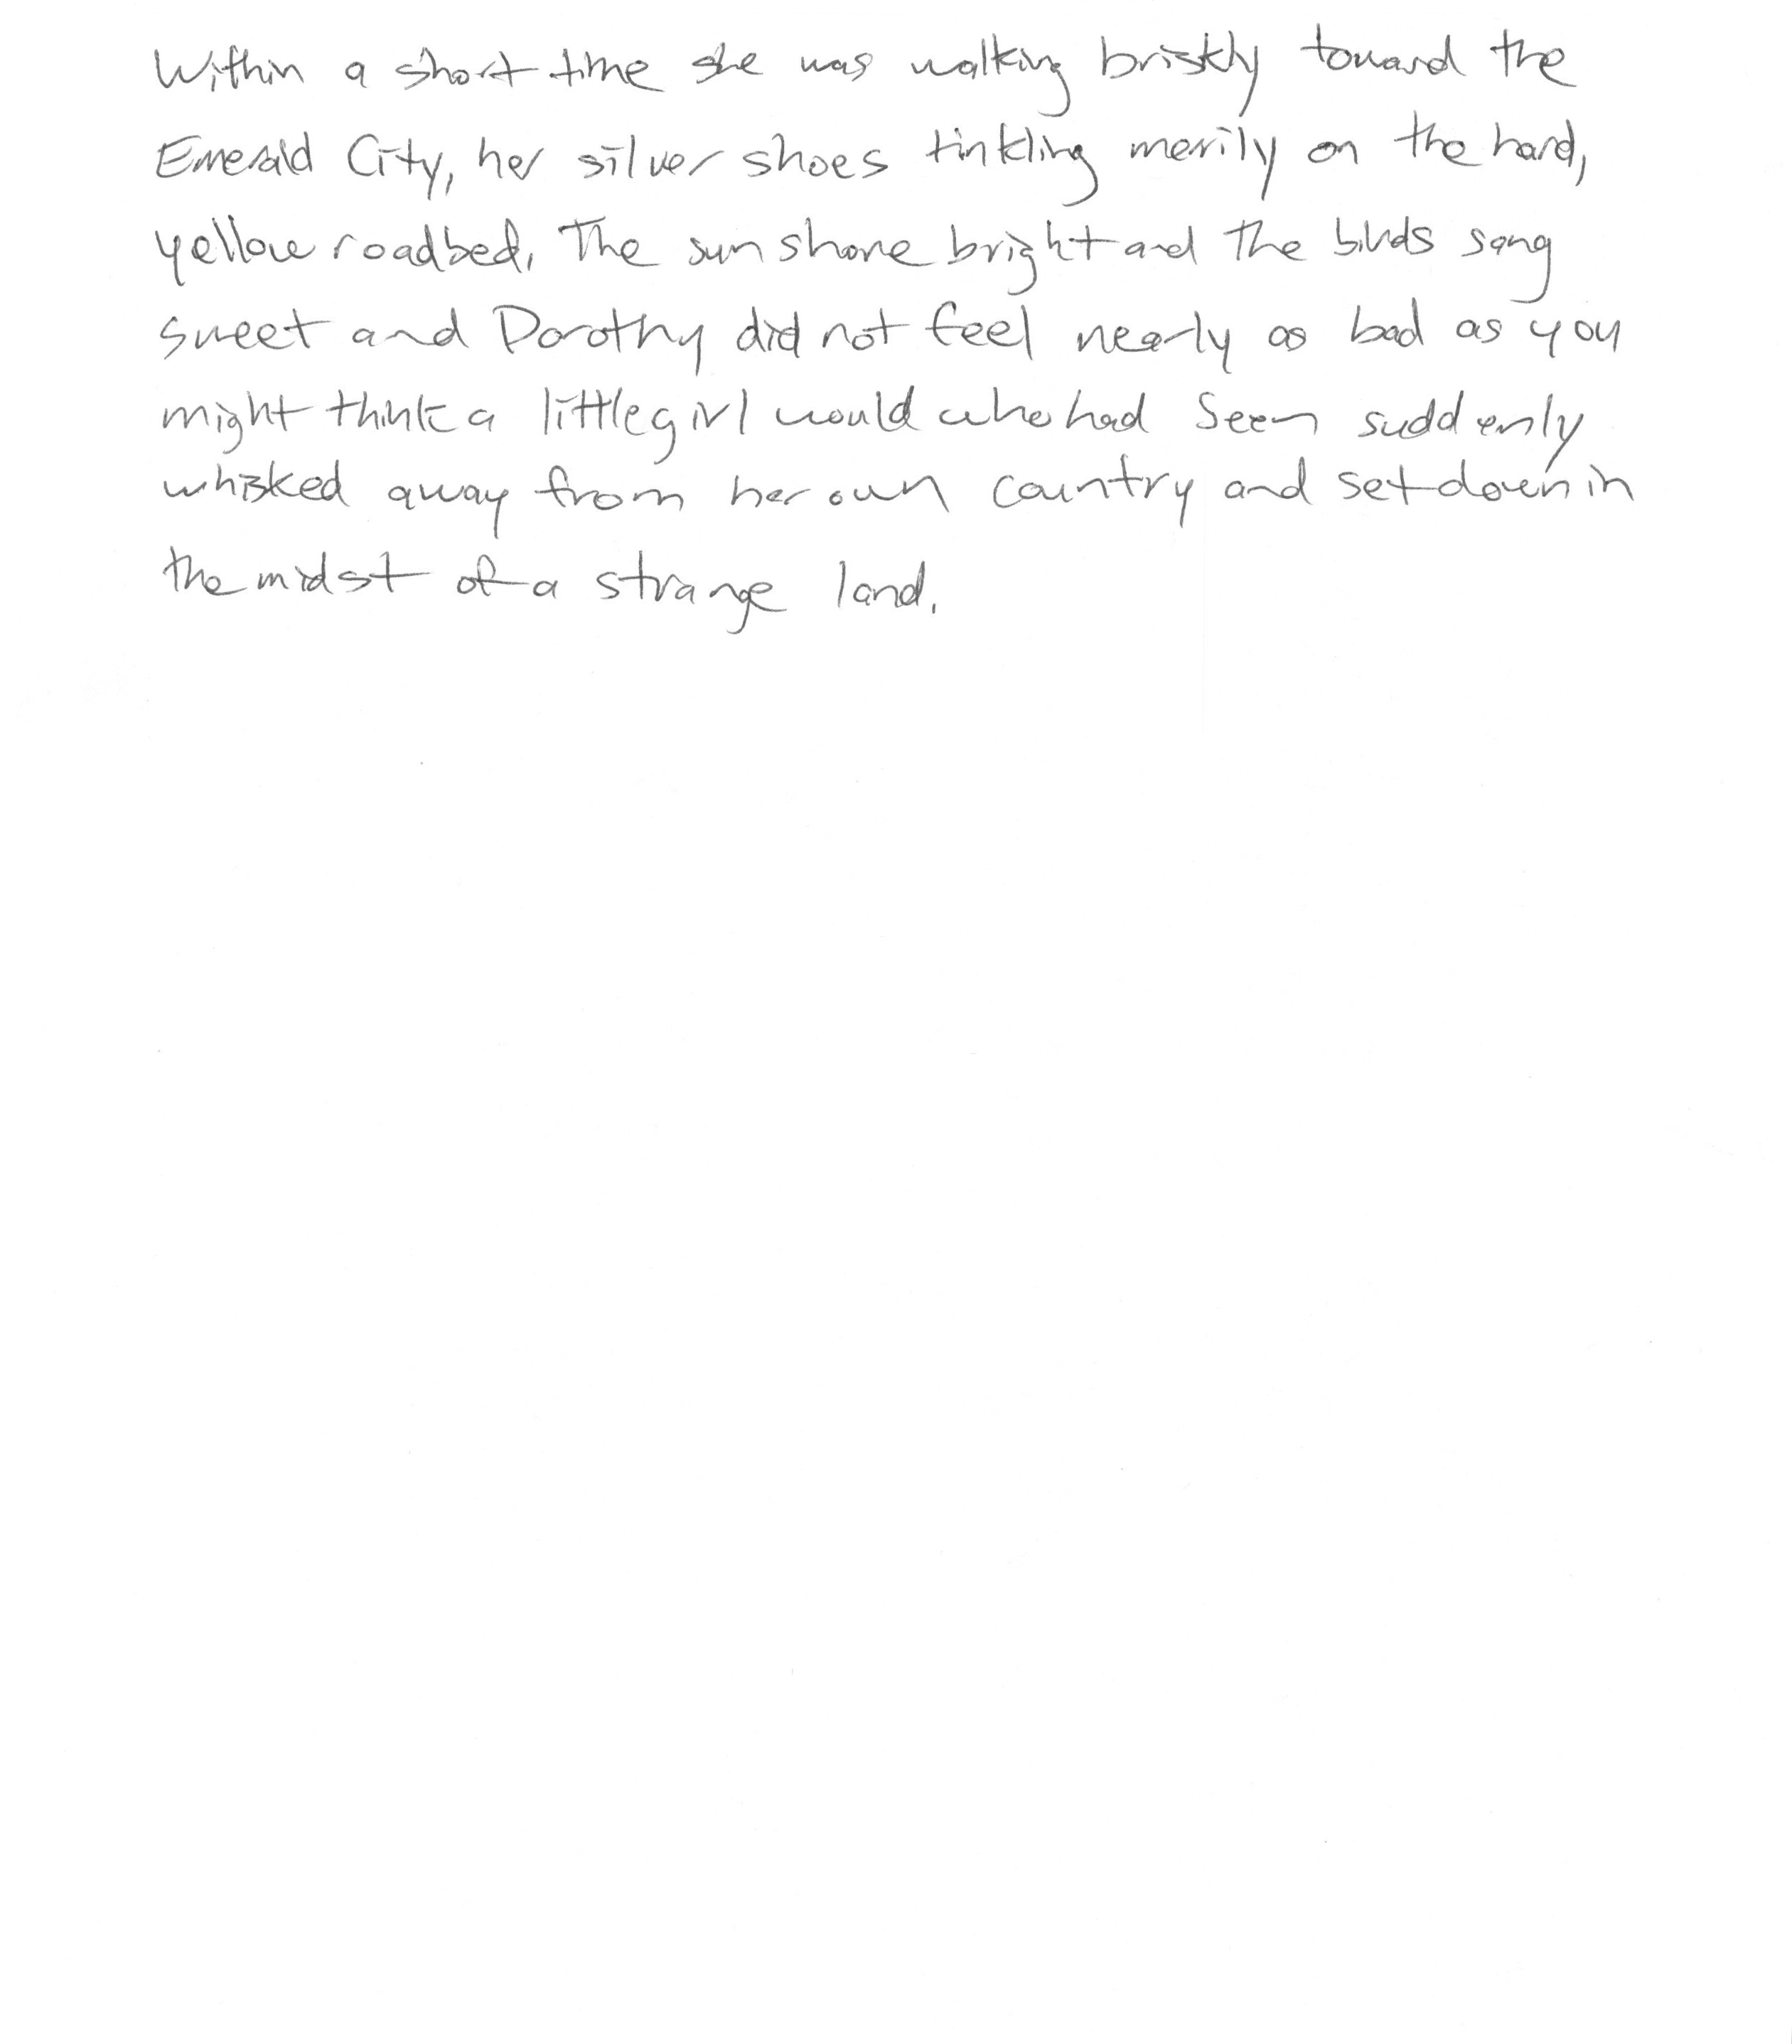 Within a short time she was walking briskly toward the
Emerald City, her silver shoes tinkling merrily on the hard,
yellow roadbed. The sun shone bright and the birds sang
sweet and Dorothy did not feel nearly as bad as you
might think a little girl would who had seen suddenly
whisked away from her own country and set down in
the midst of a strange land.